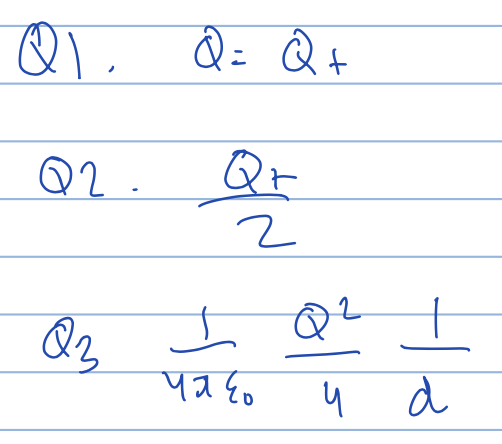 Q1. Q = Q+
Q2. Q+/2
Q3 1/4πε₀ Q²/4 1/d